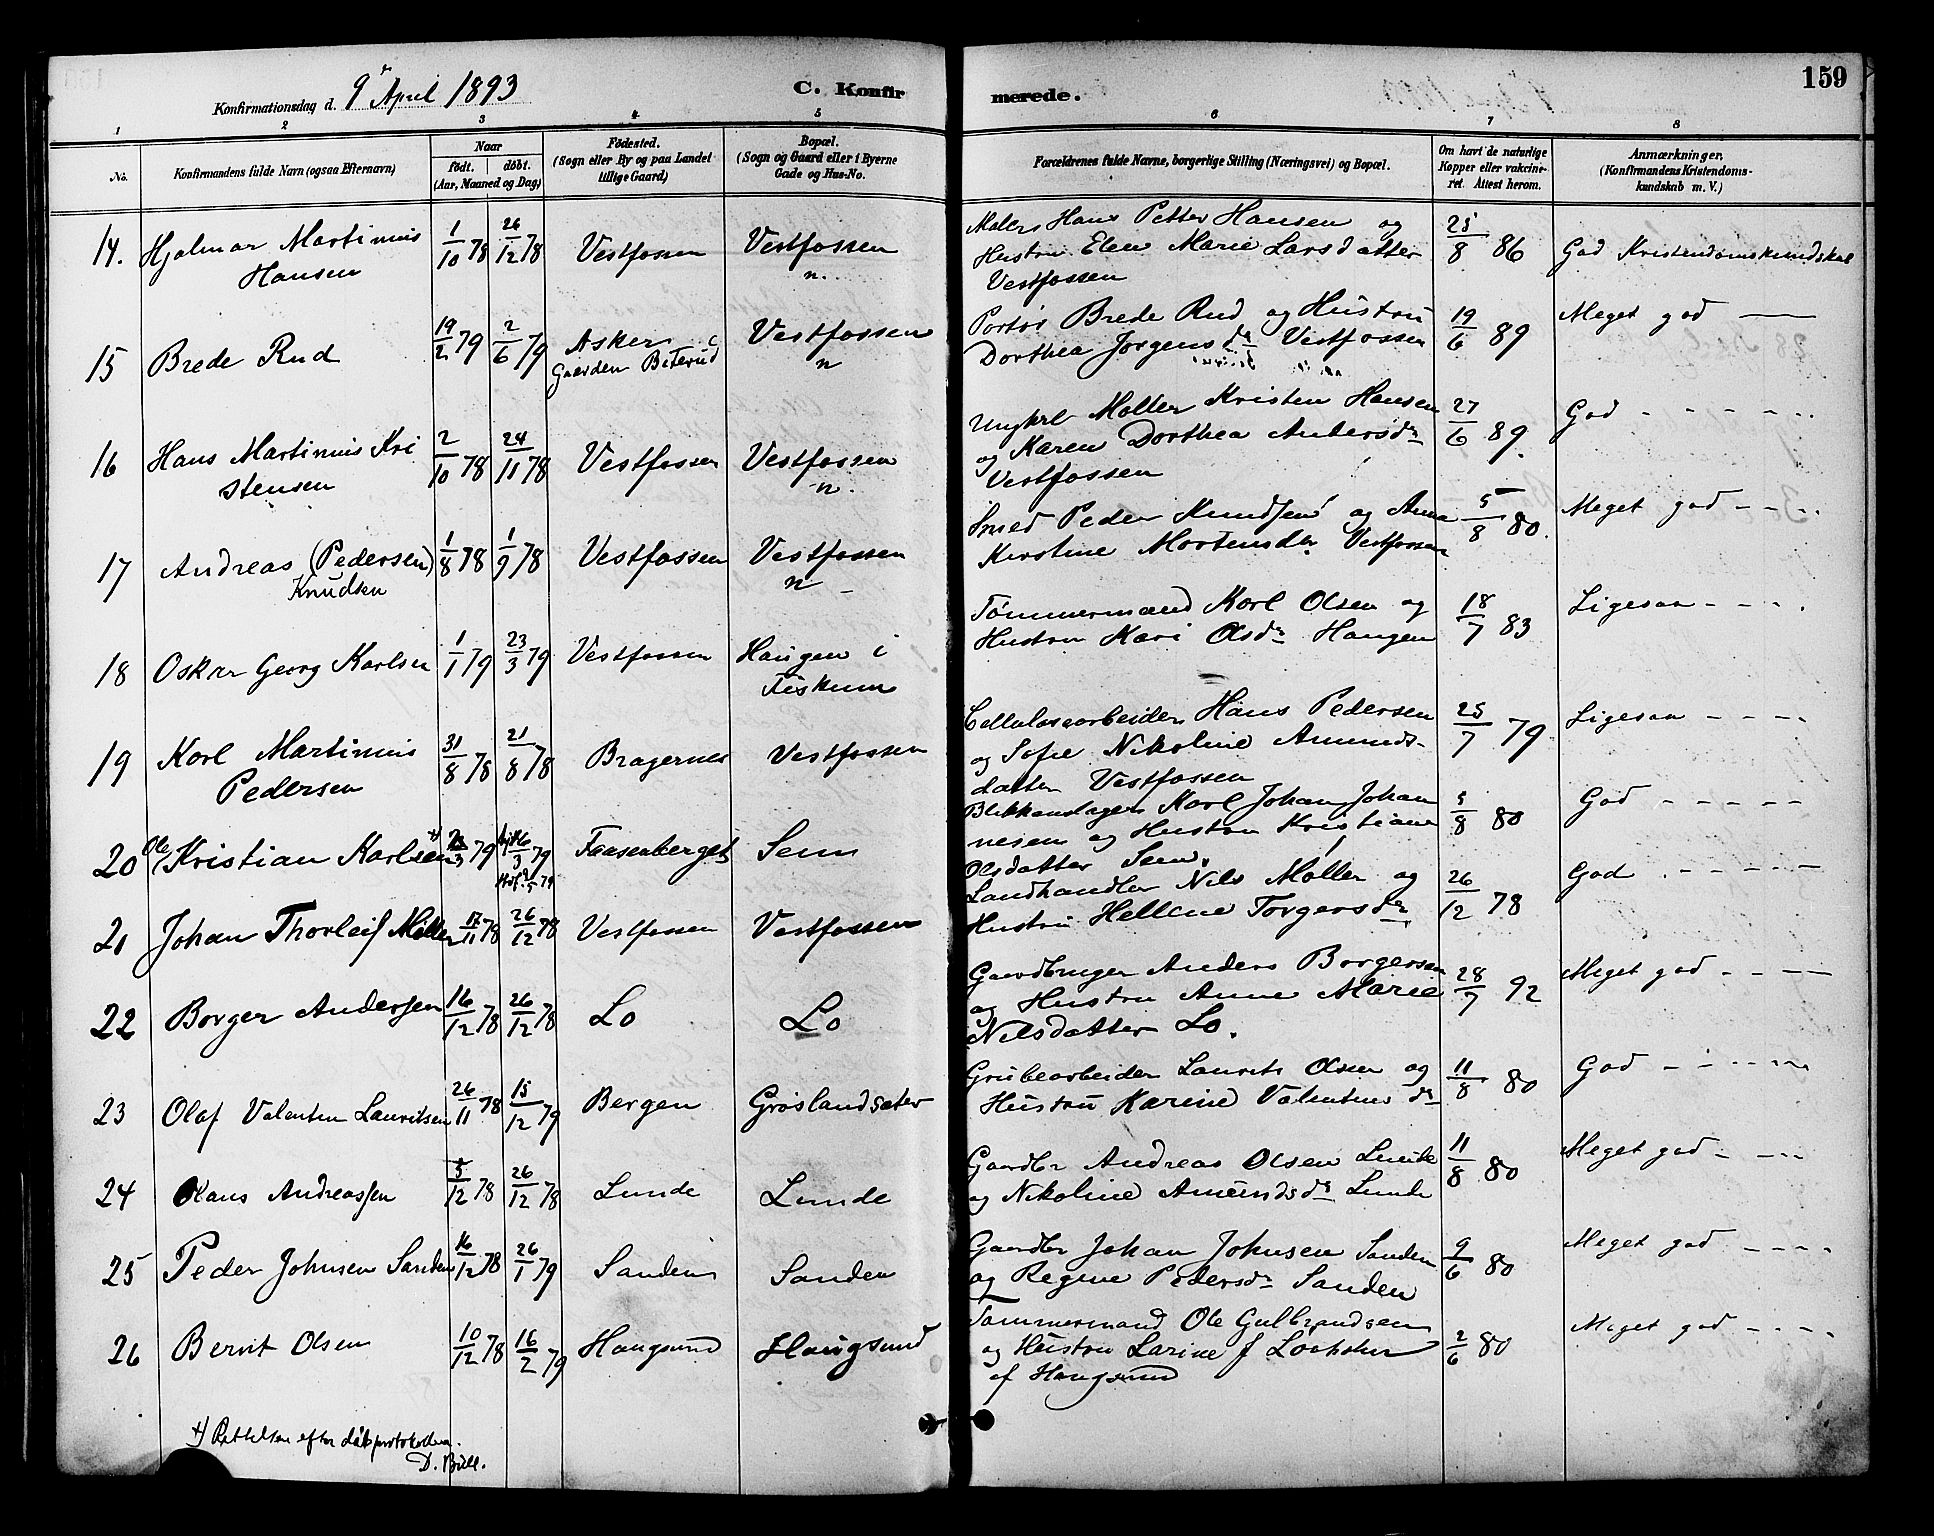 159
Konfirmationsdag d. 9de April 1893
C. Konfirmerede.
1 2 3 4 5 6 7 8
No.
Konfirmandens fulde Navn (ogsaa Efternavn)
Naar
født. døbt.
(Aar, Maaned og Dag)
Fødested.
(Sogn eller By og paa Landet
tillige Gaard)
Bopæl.
(Sogn og Gaard eller i Byerne
Gade og Hus-No.
Forældrenes fulde Navne, borgerlige Stilling (Næringsvei) og Bopæl.
Om havt de naturlige
Kopper eller vakcine-
ret. Attest herom.
Anmærkninger,
(Konfirmandens Kristendoms-
kundskab m. V.)
14. Hjalmar Martinius
Hansen
1/10 78 26/12 78 Vestfossen Vestfossen
n.
Maler Hans Petter Hansen og
Hustru Elen Marie Larsdatter
Vestfossen
25/8 86 God Kristendomskundskab
15 Brede Rud
19/2 79 2/6 79 Asker
Gaarden Biterud
Vestfossen
n
Portør Brede Rud og Hustru
Dorthea Jørgensdr Vestfossen
19/6 89 Meget god
16 Hans Martinius Kri
stensen
2/10 78 24/11 78 Vestfossen Vestfossen
n.
Ungkrl Møller Kristen Hansen
og Karen Dorthea Andersdr
Vestfossen
27/6 89. God - - - - -
17 Andreas (Pedersen)
Knudsen
1/8 78 1/9 78 Vestfossen Vestfossen
n
Smed Peder Knudsen og Anna
Kirstine Mortensdr. Vestfossen
5/8 80. Meget god - - - -
18 Oskar Georg Karlsen
1/1 79 23/3 79 Vestfossen Haugen i
Fiskum
Tømmermand Karl Olsen og
Hustru Kari Olsdr Haugen
18/7 83 Ligesaa - - - -
19 Karl Martinius
Pedersen
31/8 78 21/8 78 Bragernes Vestfossen
Cellulosearbeider Hans Pedersen
og Sofie Nikoline Amunds-
datter Vestfossen
25/7 79 Ligesaa - - - -
20 Ole Kristian Karlsen +)
/3 79 16/3 79 Faaseaberget Sem
Blikkenslager Karl Johan Johan
nesen og Hustru Kristiane
Olsdatter Sem.
5/8 80 God - - - - -
21 Johan Thorleif Møller
17/11 78 26/12 78 Vestfossen Vestfossen
Landhandler Nils Møller og
Hustru Hellene Torgersdr
26/12 78 God - - - - -
22 Borger Anderssen
16/12 78 26/12 78 Lo Lo
Gaardbruger Anders Borgersen
og Hustru Anne Marie
Nilsdatter Lo.
28/7 92 Meget god - - - -
23 Olaf Valentin Lauritsen
26/11 78 15/12 79 Bergen Grøslandsæter
Grubearbeider Laurits Olsen og
Hustru Karine Valentinsdr
11/8 80 God - - - - -
24 Hans Andreassen
5/12 78 26/12 78 Lunde Lunde
Gaardbr Andreas Olsen Lunde
og Nikoline Amundsdr Lunde
11/8 80 Meget god - - - -
25 Peder Johnsen Sanden
16/12 78 26/1 79 Sanden Sanden
Gaardbr Johan Johnsen Sanden
og Regine Pedersdr Sanden
9/6 80 Meget god - - - -
26 Bernt Olsen
10/12 78 16/2 79 Haugsund Haugsund
Tømmermand Ole Gulbrandsen
og Hustru Larine f
af Haugsund
2/6 80 Meget god - - - -
+) Rettelse efter dåbsprotokollen.
D. Bull.